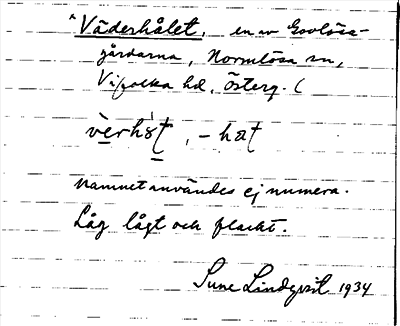 *Väderhålet, en av Govlösa-
gårdarna, Normlösa sn,
Vifolka hd, Österg. (
vèrhåt, - hat
Namnet användes ej numera.
Låg lågt och flackt.
Sune Lindqvist 1934